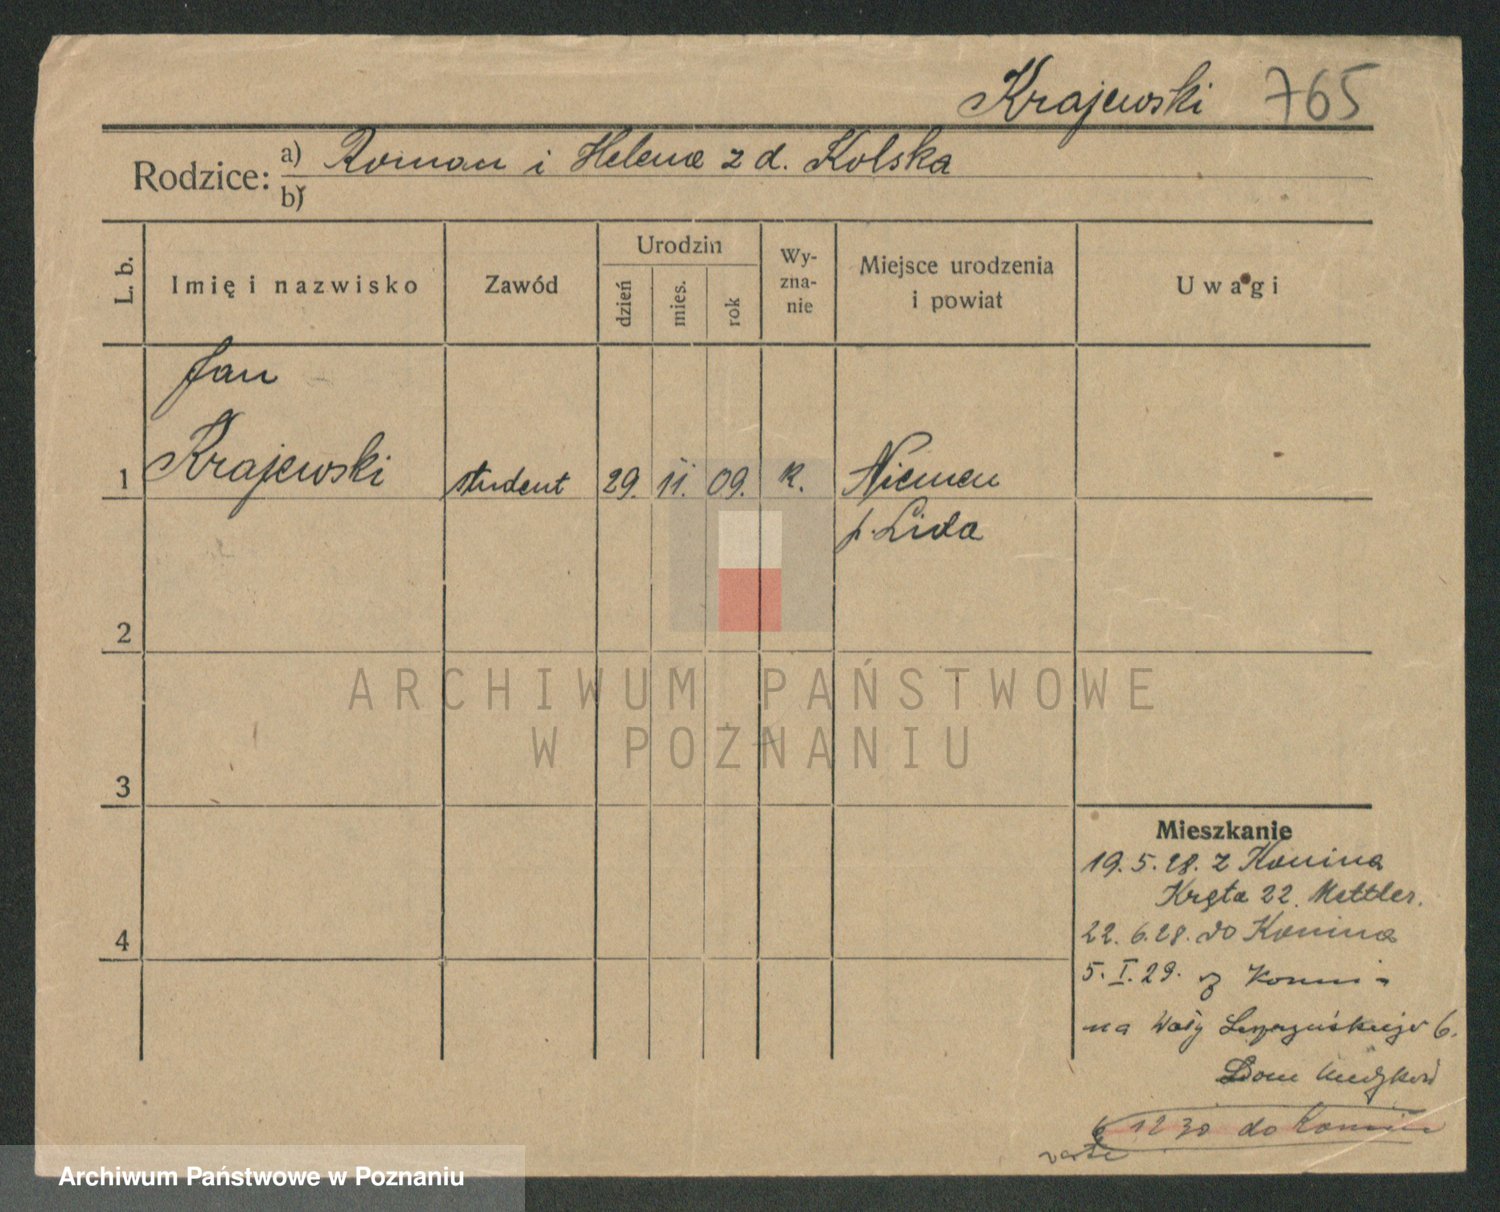 Krajewski 765
Rodzice: a) Roman i Helena z d. Kolska
b)
L. b.
Imię i nazwisko
Zawód
Urodzin
dzień
mies.
rok
Wy-
zna-
nie
Miejsce urodzenia
i powiat
Uwagi
Jan
1 Krajewski student 29. 11. 09. K. Niemen
p. Lida
2
ARCHIWUM PAŃSTWOWE
W POZNANIU
3
Mieszkanie
19. 5. 28. z Konina
Kręta 22. Mettler.
4
22. 6. 28. do Konina
5. I. 29. z Koni-
na Wały 6.
Dom
12 30 do Konin
Archiwum Państwowe w Poznaniu